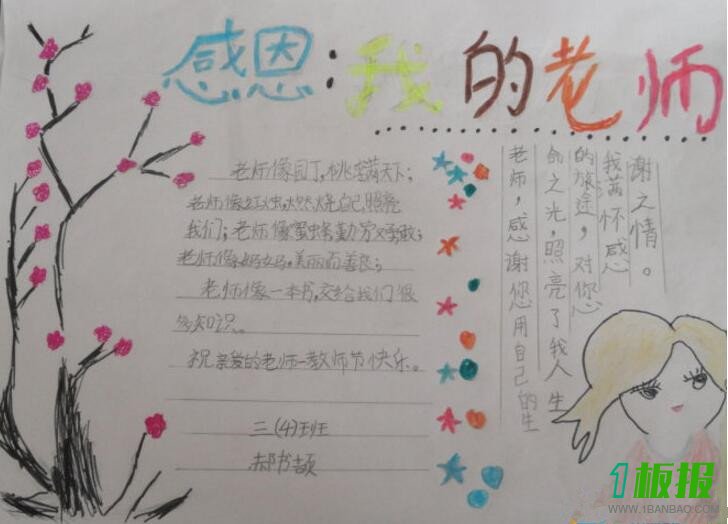 感恩:我的老师
老师像园丁,桃李满天下;
老师像红烛,燃烧自己,照亮
我们;老师像蜜蜂,勤劳又勇敢;
老师像妈妈,美丽而善良;
老师像一本书,交给我们很
多知识。
祝亲爱的老师-教师节快乐。
三(4)班
郝书颉
老师,感谢您用自己的生
命之光,照亮了我人生
的旅途,对您
我满怀感
谢之情。
1板报
WWW.1BANBAO.COM